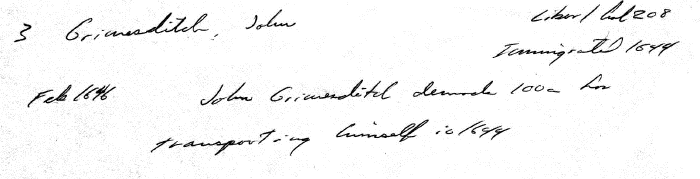 3 Grimesditch, John
Liber 1 fol 208
Immigrated 1644
Feb 1646 John Grimesditch demands 100a for
transporting himself in 1644